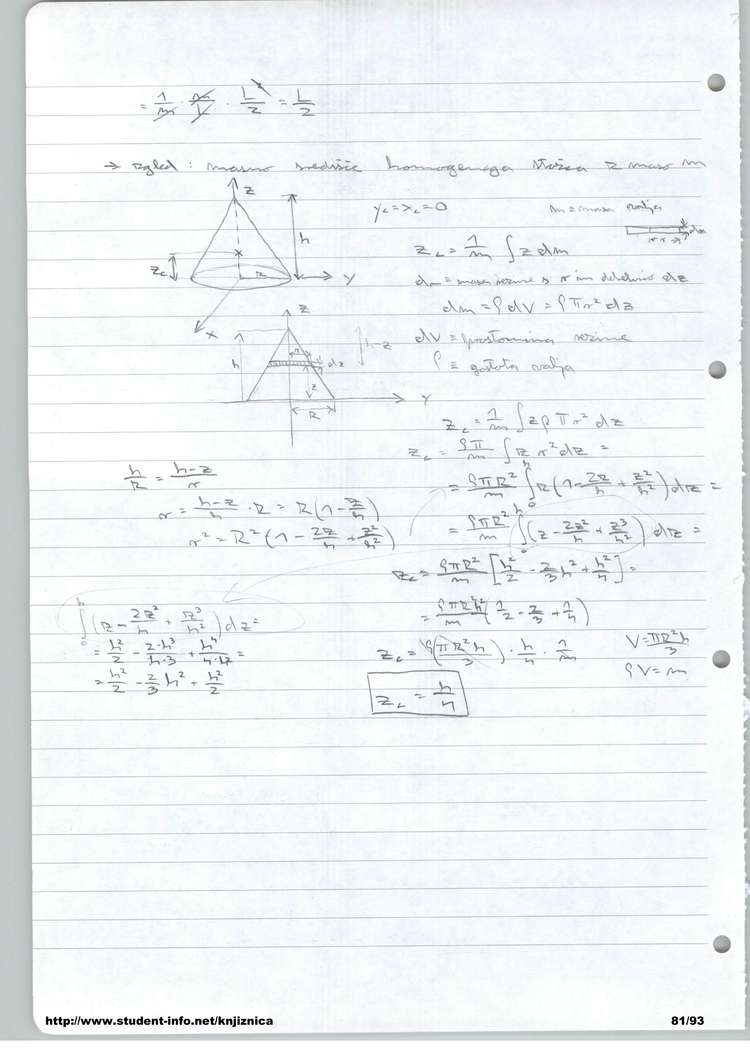 = 1/m · m/L · L²/2 = L/2
→ zgled : masno središče homogenega stožca z maso m
z
h
z_c
R
y
x
y_c = x_c = 0
m = masa valja
z_c = 1/m ∫ z dm
dm = masa rezine s r in debelino dz
dm = ρ dV = ρ π r² dz
dV = prostornina rezine
ρ = gostota valja
z
h
r
dz
h-z
z
R
y
z_c = 1/m ∫ z ρ π r² dz
z_c = ρπ/m ∫ z r² dz =
h/R = (h-z)/r
r = (h-z)/h · R = R(1 - z/h)
r² = R² (1 - 2z/h + z²/h²)
= ρπR²/m ∫₀ʰ z (1 - 2z/h + z²/h²) dz =
= ρπR²/m ∫₀ʰ (z - 2z²/h + z³/h²) dz =
z_c = ρπR²/m [h²/2 - 2/3 h² + h²/4] =
= ρπR²h²/m (1/2 - 2/3 + 1/4)
z_c = ρ(πR²h/3) · h/4 · 1/m
V = πR²h/3
ρV = m
z_c = h/4
∫₀ʰ (z - 2z²/h + z³/h²) dz =
= h²/2 - 2·h³/h·3 + h⁴/4·h² =
= h²/2 - 2/3 h² + h²/4
http://www.student-info.net/knjiznica
81/93